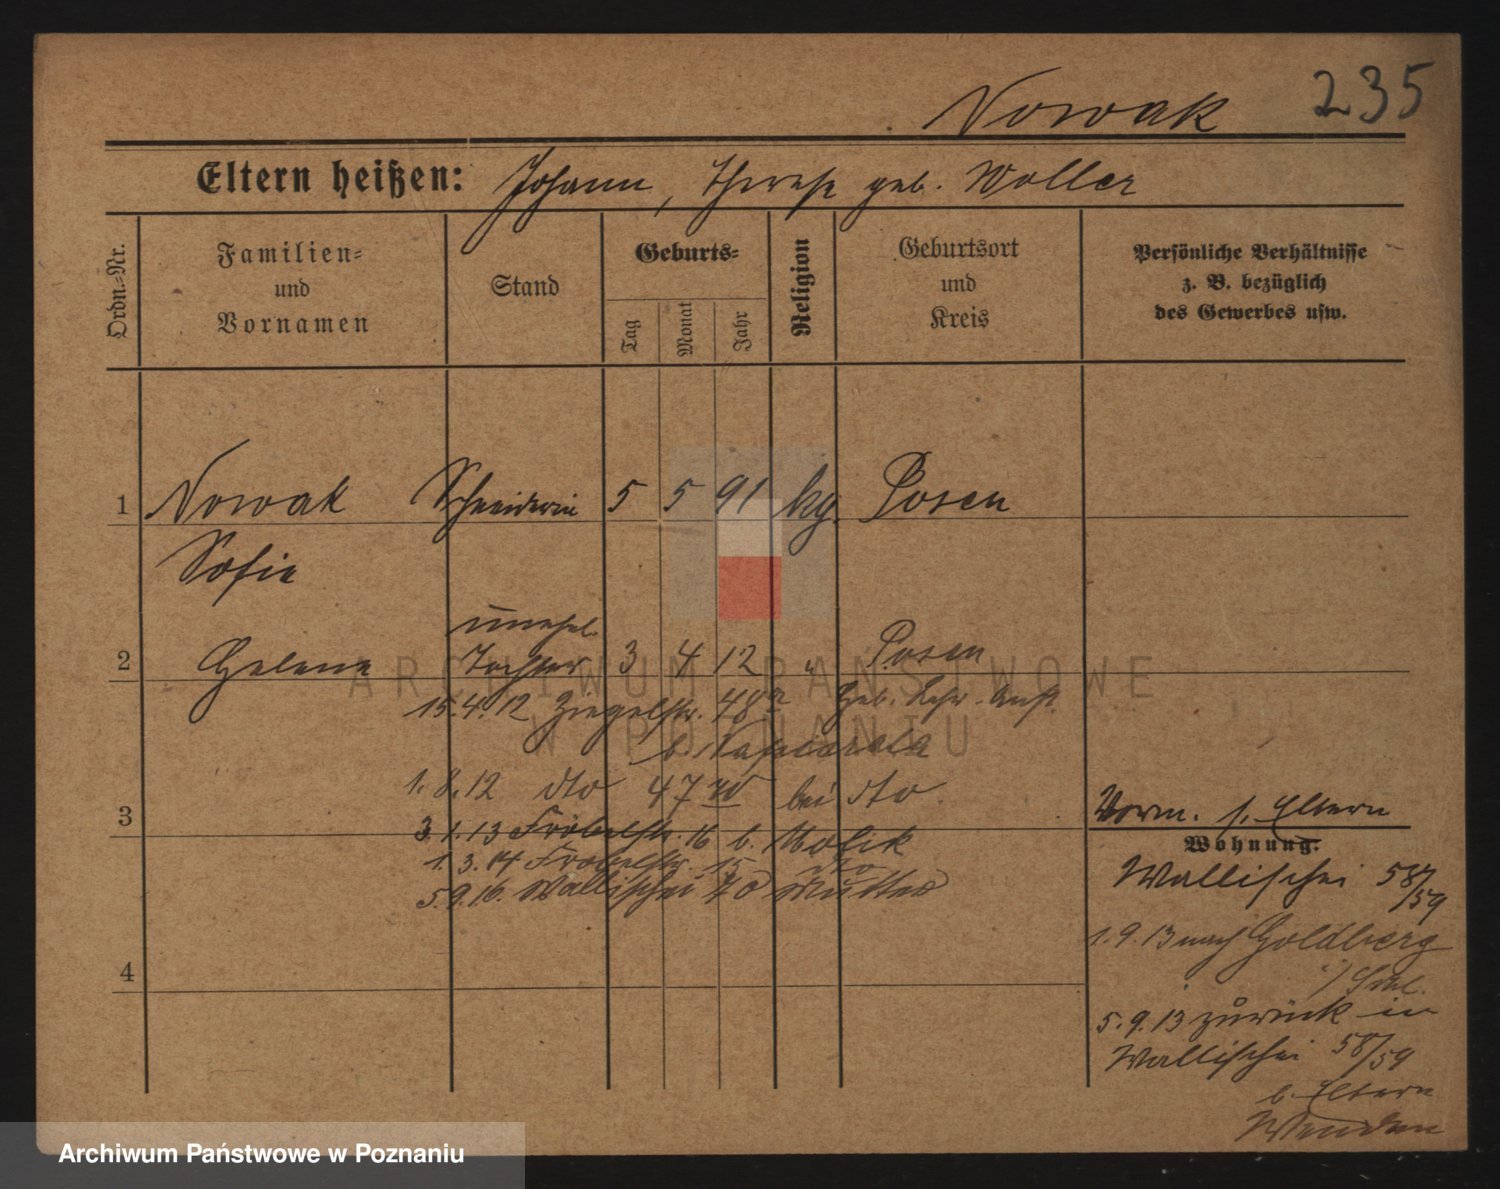 Nowak 235
Eltern heißen: Johann, Therese geb. Woller
Ordn.-Nr.
Familien-
und
Vornamen
Stand
Geburts-
Tag
Monat
Jahr
Religion
Geburtsort
und
Kreis
Persönliche Verhältnisse
z. B. bezüglich
des Gewerbes usw.
1 Nowak Schneiderin 5 5 91 kg. Posen
Sofie
unehel.
2 Helene Tochter 3 4 12 " Posen
15.4.12 Ziegelstr. 48 Geb. Lehr-Anst.
b.
1.8.12 dto 47 bei dto
3 3.1.13 Fröbelstr. 16 b. Molik
1.3.14 Fröbelstr. 15 dto
5.9.16. Wallischei 70 Mutter
4
Vorm. s. Eltern
Wohnung.
Wallischei 58/59
1.9.13 nach Goldberg
i/ Schl.
5.9.13 zurück in
Wallischei 58/59
b. Eltern
ARCHIWUM PAŃSTWOWE
W POZNANIU
Archiwum Państwowe w Poznaniu